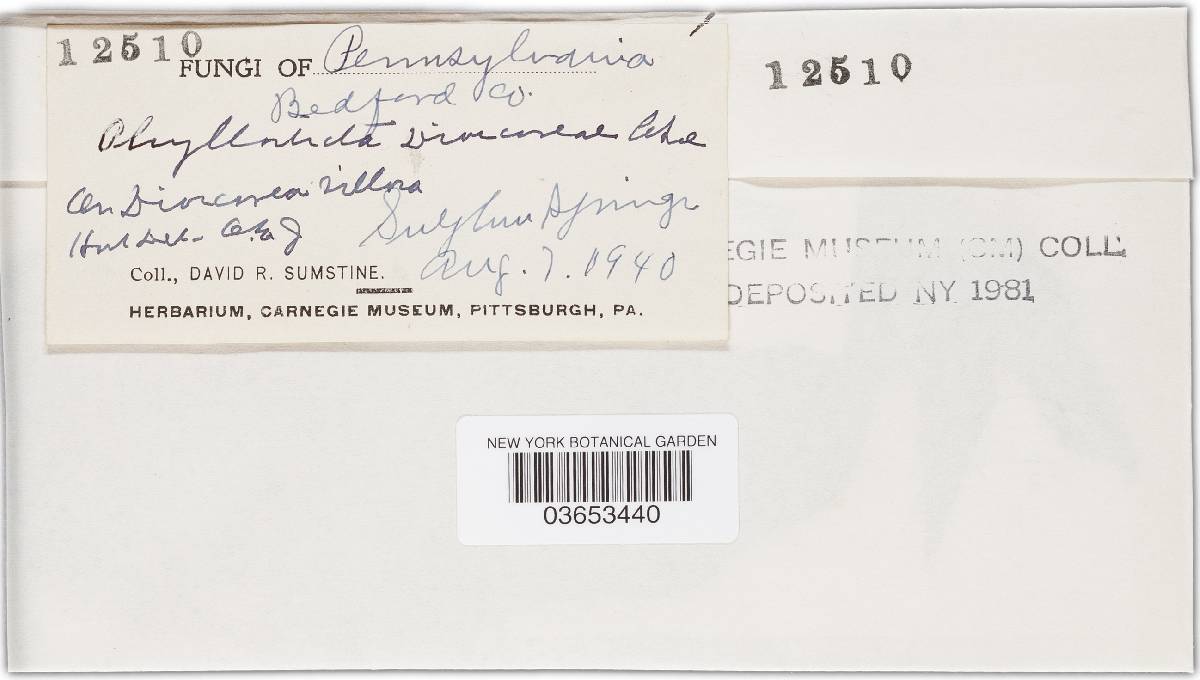 12510
FUNGI OF Pennsylvania
Bedford Co.
Phyllosticta Dioscoreae Cke
On Dioscorea villosa
Host Det. O.E.J
Sulphur Springs
Aug. 7. 1940
Coll., DAVID R. SUMSTINE.
HERBARIUM, CARNEGIE MUSEUM, PITTSBURGH, PA.
12510
EGIE MUSEUM (CM) COLL.
DEPOSITED NY 1981
NEW YORK BOTANICAL GARDEN
03653440